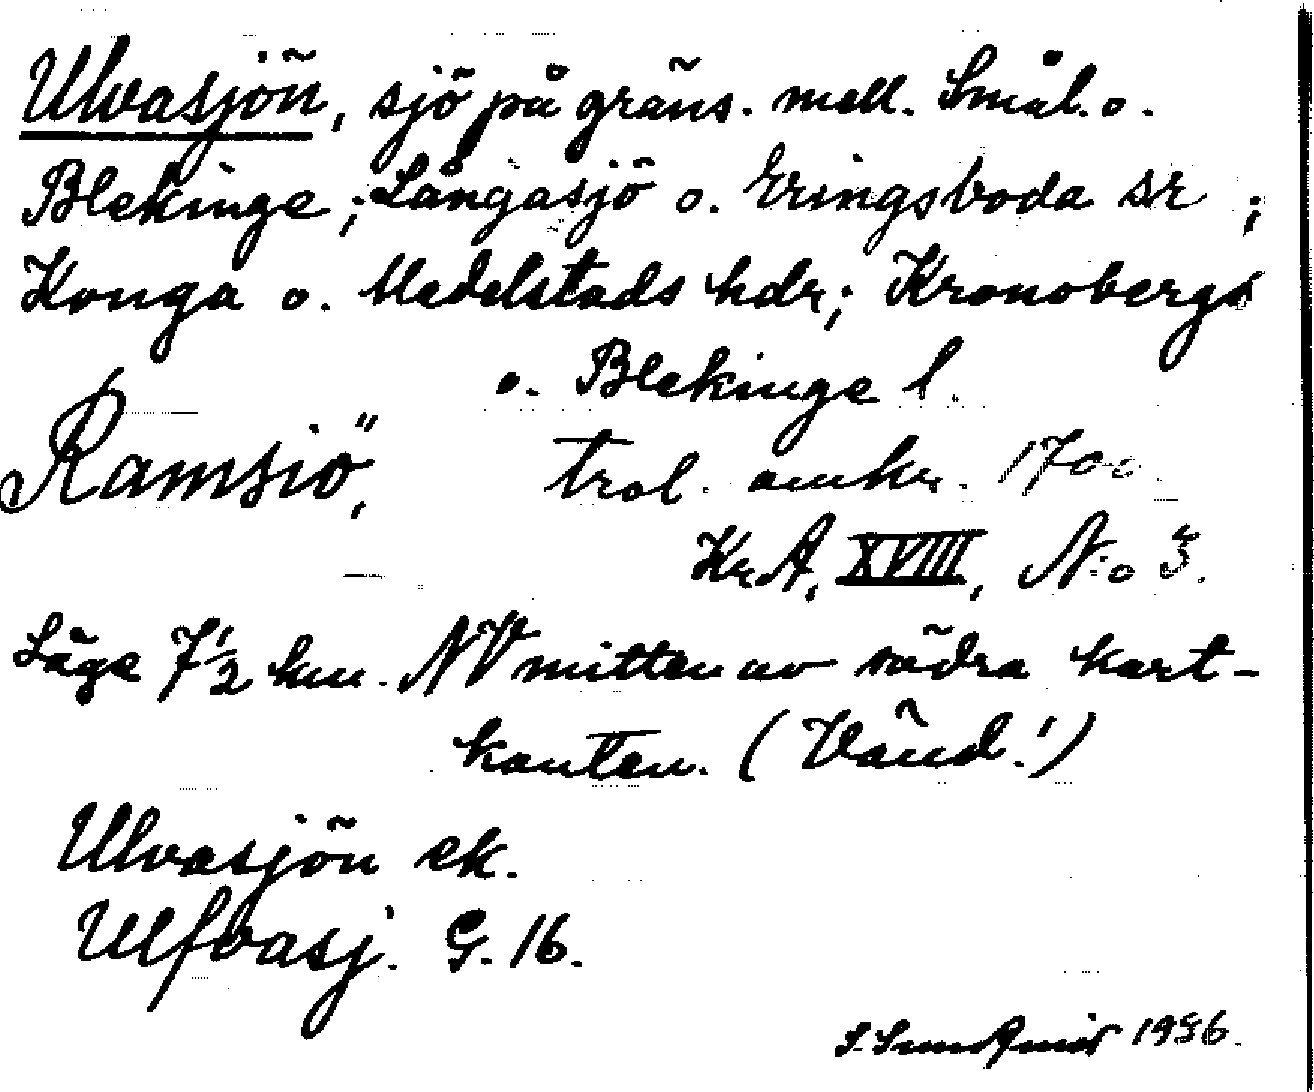 Ulvasjön, sjö på gräns. mell. Smål. o.
Blekinge; Långasjö o. Eringsboda sr;
Konga o. Medelstads hdr; Kronobergs
o. Blekinge l.
"Ramsiö", trol. omkr. 1700
KrA, XVIII, N:o 3.
Läge 7 1/2 km. NV mitten av södra kart-
kanten. (Vänd!)
Ulvasjön ek.
Ulfvasj. G. 16.
S. 1936.